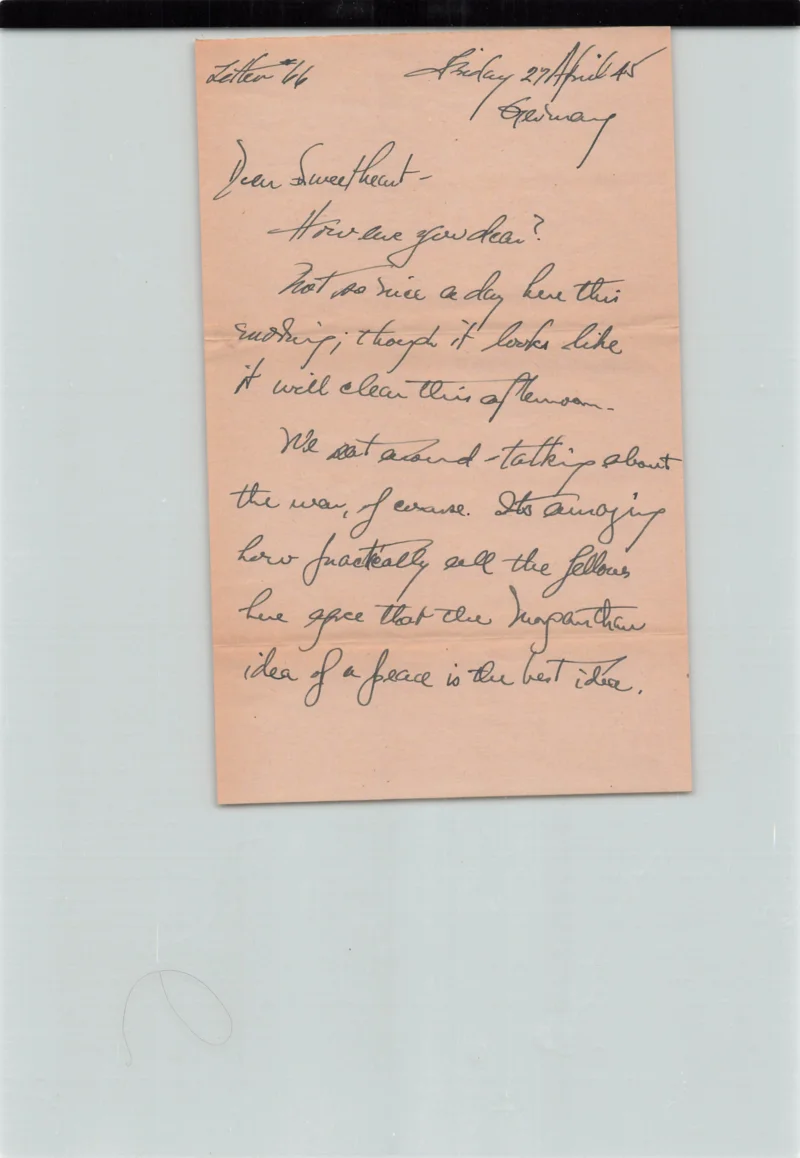 Letter #66 Friday 27 April 45
Germany
Dear Sweetheart -
How are you dear?
Not so nice a day here this
morning; though it looks like
it will clear this afternoon.
We sat around talking about
the war, of course. Its amazing
how practically all the fellows
here agree that the
idea of a peace is the best idea.